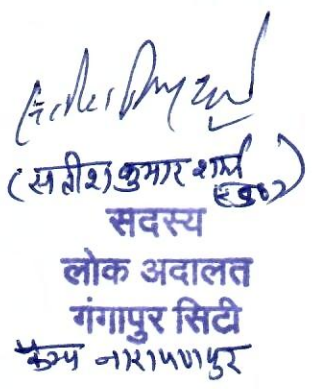 (सतीश कुमार शर्मा)
सदस्य
लोक अदालत
गंगापुर सिटी
कैम्प नारायणपुर